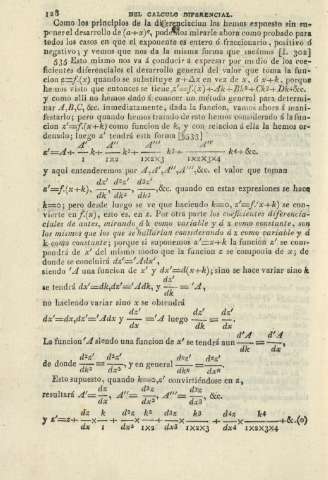 128 DEL CALCULO DIFERENCIAL.
Como los principios de la diferenciacion los hemos expuesto sin su-
poner el desarrollo de (a+x)ⁿ, podemos mirarle ahora como probado para
todos los casos en que el exponente es entero ó fraccionario, positivo ó
negativo; y vemos que nos da la misma forma que hacíamos [L. 302]
535 Esto mismo nos va á conducir á expresar por medio de los coe-
ficientes diferenciales el desarrollo general del valor que toma la fun-
cion z=f.(x) quando se substituye x+dx en vez de x, ó x+k, porque
hemos visto que entonces se tiene z'=f.(x)+Ak+Bk²+Ck³+Dk⁴&c.
y como allí no hemos dado á conocer un método general para determi-
nar A,B,C, &c. inmediatamente, dada la funcion, vamos ahora á mani-
festarlo; pero quando hemos tratado de esto hemos considerado á la fun-
cion z'=f.(x+k) como funcion de k, y con relacion á ella la hemos or-
denado; luego z' tendrá esta forma [§533]
z'=A+ A'/1 k+ A''/1X2 k²+ A'''/1X2X3 k³+ A''''/1X2X3X4 k⁴+&c.
y aquí entenderemos por A,A',A'',A''',&c. el valor que toman
z'=f.(x+k), dz'/dk, d²z'/dk², d³z'/dk³, &c. quando en estas expresiones se hace
k=0; pero desde luego se ve que haciendo k=0, z'=f.(x+k) se con-
vierte en f.(x), esto es, en z. Por otra parte los coeficientes diferencia-
ciales de antes, mirando á k como variable y á x como constante, son
los mismos que los que se hallarian considerando á x como variable y á
k como constante; porque si suponemos x'=x+k la funcion z' se com-
pondrá de x' del mismo modo que la funcion z se componia de x; de
donde se concluirá dz'='Adx',
siendo 'A una funcion de x' y dx'=d(x+k); sino se hace variar sino k
se tendrá dx'=dk, dz'='Adk, y dz'/dk ='A,
no haciendo variar sino x se obtendrá
dx'=dx, dz'='Adx y dz'/dx ='A luego dz'/dk = dz'/dx.
La funcion 'A siendo una funcion de x' se tendrá aun d'A/dk = d'A/dx,
de donde d²z'/dk² = d²z'/dx², y en general dⁿz'/dkⁿ = dⁿz'/dxⁿ.
Esto supuesto, quando k=0, z' convirtiéndose en z,
resultará A'= dz/dx, A''= d²z/dx², A'''= d³z/dx³, &c.
y z'=z+ dz/dx × k/1 + d²z/dx² × k²/1X2 + d³z/dx³ × k³/1X2X3 + d⁴z/dx⁴ × k⁴/1X2X3X4 +&c.(o)